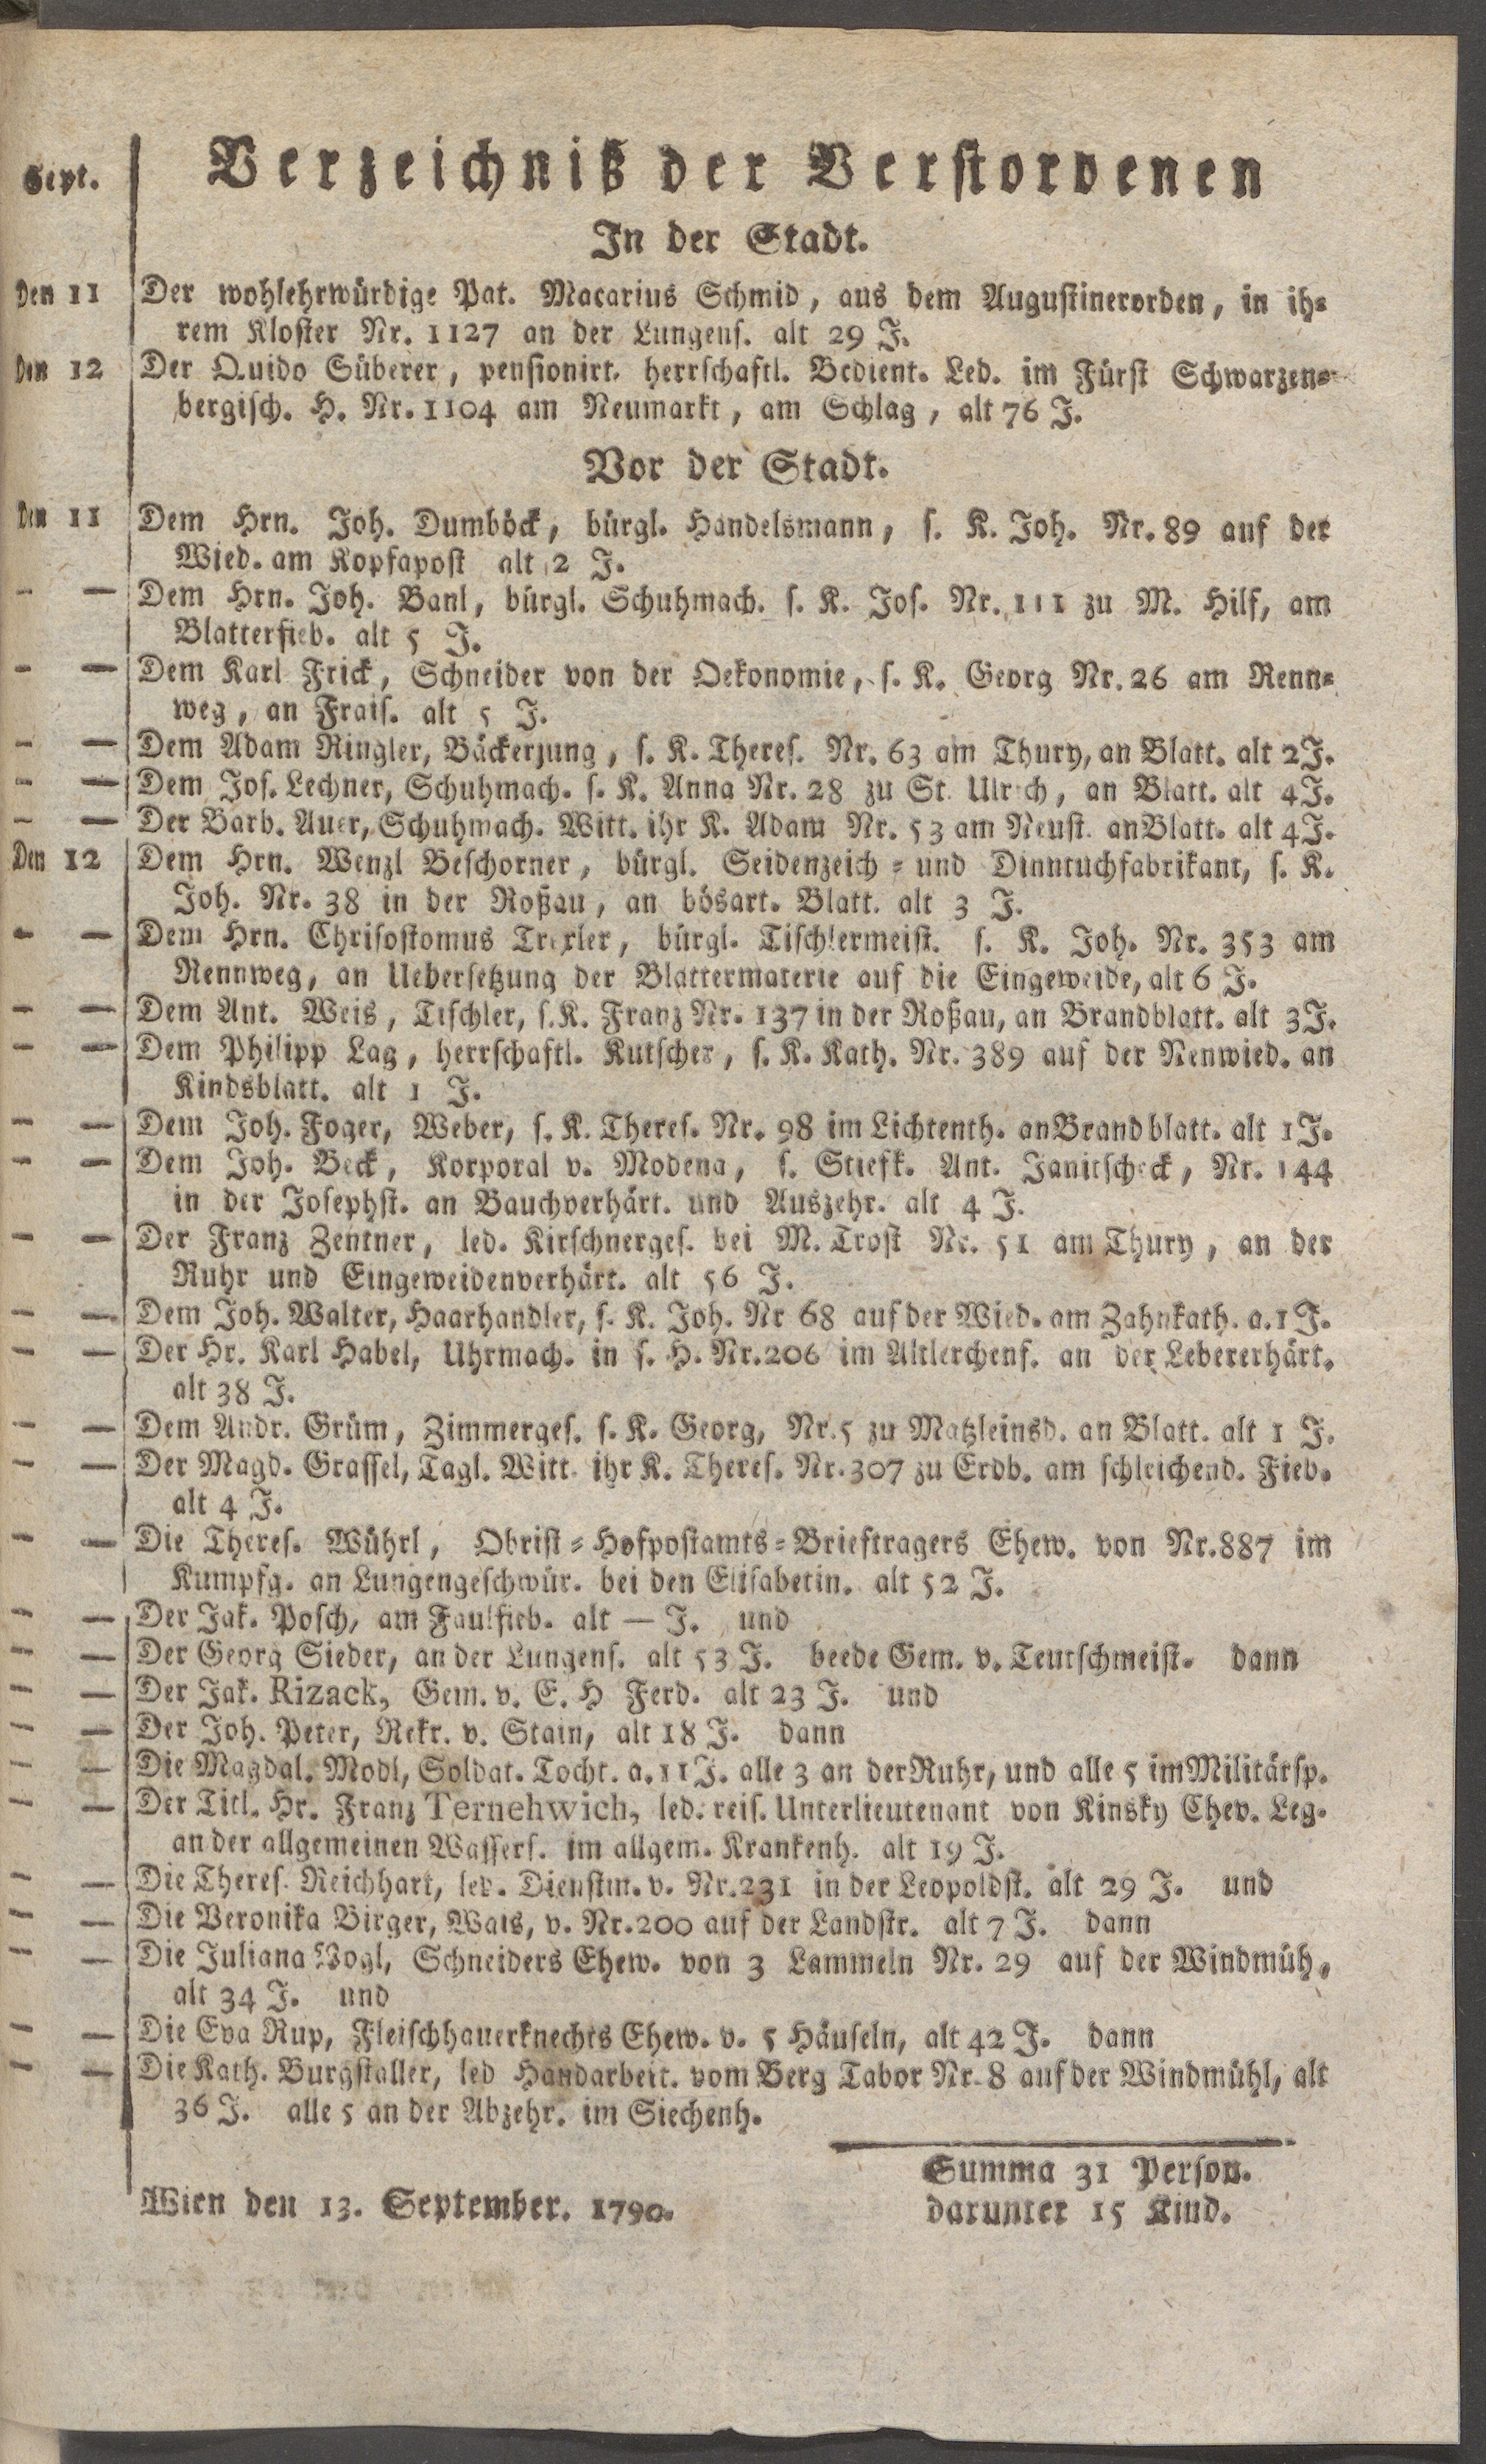 Sept. Verzeichniß der Verstorbenen
In der Stadt.
Den 11 Der wohlehrwürdige Pat. Macarius Schmid, aus dem Augustinerorden, in ih=
rem Kloster Nr. 1127 an der Lungens. alt 29 J.
Den 12 Der Quido Süberer, pensionirt. herrschaftl. Bedient. Led. im Fürst Schwarzen=
bergisch. H. Nr. 1104 am Neumarkt, am Schlag, alt 76 J.
Vor der Stadt.
Den 11 Dem Hrn. Joh. Dumböck, bürgl. Handelsmann, s. K. Joh. Nr. 89 auf der
Wied. am Kopfapost alt 2 J.
- — Dem Hrn. Joh. Banl, bürgl. Schuhmach. s. K. Jos. Nr. 111 zu M. Hilf, am
Blatterfieb. alt 5 J.
- — Dem Karl Frick, Schneider von der Oekonomie, s. K. Georg Nr. 26 am Renn=
weg, an Frais. alt 5 J.
- — Dem Adam Ringler, Bäckerjung, s. K. Theres. Nr. 63 am Thury, an Blatt. alt 2 J.
- — Dem Jos. Lechner, Schuhmach. s. K. Anna Nr. 28 zu St. Ulrich, an Blatt. alt 4 J.
- — Der Barb. Auer, Schuhmach. Witt. ihr K. Adam Nr. 53 am Neust. an Blatt. alt 4 J.
Den 12 Dem Hrn. Wenzl Beschorner, bürgl. Seidenzeich = und Dinntuchfabrikant, s. K.
Joh. Nr. 38 in der Roßau, an bösart. Blatt. alt 3 J.
- — Dem Hrn. Chrisostomus Trexler, bürgl. Tischlermeist. s. K. Joh. Nr. 353 am
Rennweg, an Uebersetzung der Blattermaterie auf die Eingeweide, alt 6 J.
- — Dem Ant. Weis, Tischler, s. K. Franz Nr. 137 in der Roßau, an Brandblatt. alt 3 J.
- — Dem Philipp Lag, herrschaftl. Kutscher, s. K. Kath. Nr. 389 auf der Nenwied. an
Kindsblatt. alt 1 J.
- — Dem Joh. Foger, Weber, s. K. Theres. Nr. 98 im Lichtenth. an Brandblatt. alt 1 J.
- — Dem Joh. Beck, Korporal v. Modena, s. Stiefk. Ant. Janitscheck, Nr. 144
in der Josephst. an Bauchverhärt. und Auszehr. alt 4 J.
- — Der Franz Zentner, led. Kirschnerges. bei M. Trost Nr. 51 am Thury, an der
Ruhr und Eingeweidenverhärt. alt 56 J.
- — Dem Joh. Walter, Haarhandler, s. K. Joh. Nr 68 auf der Wied. am Zahnkath. a. 1 J.
- — Der Hr. Karl Habel, Uhrmach. in s. H. Nr. 206 im Altlerchenf. an der Lebererhärt.
alt 38 J.
- — Dem Andr. Grüm, Zimmerges. s. K. Georg, Nr. 5 zu Matzleinsd. an Blatt. alt 1 J.
- — Der Magd. Grassel, Tagl. Witt. ihr K. Theres. Nr. 307 zu Erdb. am schleichend. Fieb.
alt 4 J.
- — Die Theres. Wührl, Obrist = Hofpostamts = Brieftragers Ehew. von Nr. 887 im
Kumpfg. an Lungengeschwür. bei den Elisabetin. alt 52 J.
- — Der Jak. Posch, am Faulfieb. alt — J. und
- — Der Georg Sieder, an der Lungens. alt 53 J. beede Gem. v. Teutschmeist. dann
- — Der Jak. Rizack, Gem. v. E. H Ferd. alt 23 J. und
- — Der Joh. Peter, Rekr. v. Stain, alt 18 J. dann
- — Die Magdal. Modl, Soldat. Tocht. a. 11 J. alle 3 an der Ruhr, und alle 5 im Militärsp.
- — Der Titl. Hr. Franz Ternehwich, led. reis. Unterlieutenant von Kinsky Chev. Leg.
an der allgemeinen Wassers. im allgem. Krankenh. alt 19 J.
- — Die Theres. Reichhart, led. Dienstm. v. Nr. 231 in der Leopoldst. alt 29 J. und
- — Die Veronika Birger, Wais, v. Nr. 200 auf der Landstr. alt 7 J. dann
- — Die Juliana Vogl, Schneiders Ehew. von 3 Lammeln Nr. 29 auf der Windmüh,
alt 34 J. und
- — Die Eva Rup, Fleischhauerknechts Ehew. v. 5 Häuseln, alt 42 J. dann
- — Die Kath. Burgstaller, led Handarbeit. vom Berg Tabor Nr. 8 auf der Windmühl, alt
36 J. alle 5 an der Abzehr. im Siechenh.
Summa 31 Person.
Wien den 13. September. 1790. darunter 15 Kind.